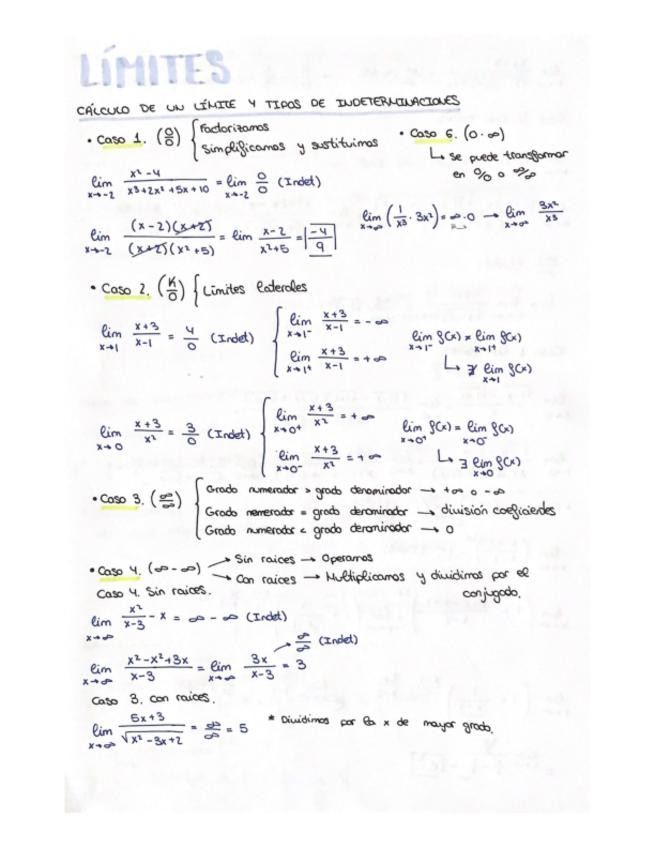 LÍMITES
CÁLCULO DE UN LÍMITE Y TIPOS DE INDETERMINACIONES
• Caso 1. (0/0) { Factorizamos
Simplificamos y sustituimos
lim x→-2 (x²-4)/(x³+2x²+5x+10) = lim x→-2 0/0 (Indet)
lim x→-2 (x-2)(x+2)/(x+2)(x²+5) = lim (x-2)/(x²+5) = -4/9
• Caso 6. (0·∞)
↳ se puede transformar
en 0/0 o ∞/∞
lim x→∞ (1/x³ · 3x²) = ∞·0 → lim x→∞ 3x²/x³
• Caso 2. (K/0) { Límites laterales
lim x→1 (x+3)/(x-1) = 4/0 (Indet)
lim x→1⁻ (x+3)/(x-1) = -∞
lim x→1⁺ (x+3)/(x-1) = +∞
lim x→1⁻ f(x) ≠ lim x→1⁺ f(x)
↳ ∄ lim x→1 f(x)
lim x→0 (x+3)/x² = 3/0 (Indet)
lim x→0⁺ (x+3)/x² = +∞
lim x→0⁻ (x+3)/x² = +∞
lim x→0⁺ f(x) = lim x→0⁻ f(x)
↳ ∃ lim x→0 f(x)
• Caso 3. (∞/∞) { Grado numerador > grado denominador → +∞ o -∞
Grado numerador = grado denominador → división coeficientes
Grado numerador < grado denominador → 0
• Caso 4. (∞-∞) → Sin raíces → Operamos
→ Con raíces → Multiplicamos y dividimos por el
conjugado.
Caso 4. Sin raíces.
lim x→∞ x²/(x-3) - x = ∞ - ∞ (Indet)
lim x→∞ (x²-x²+3x)/(x-3) = lim x→∞ 3x/(x-3) = 3 → ∞/∞ (Indet)
Caso 3. con raíces.
lim x→∞ (5x+3)/√(x²-3x+2) = ∞/∞ = 5 * Dividimos por la x de mayor grado.